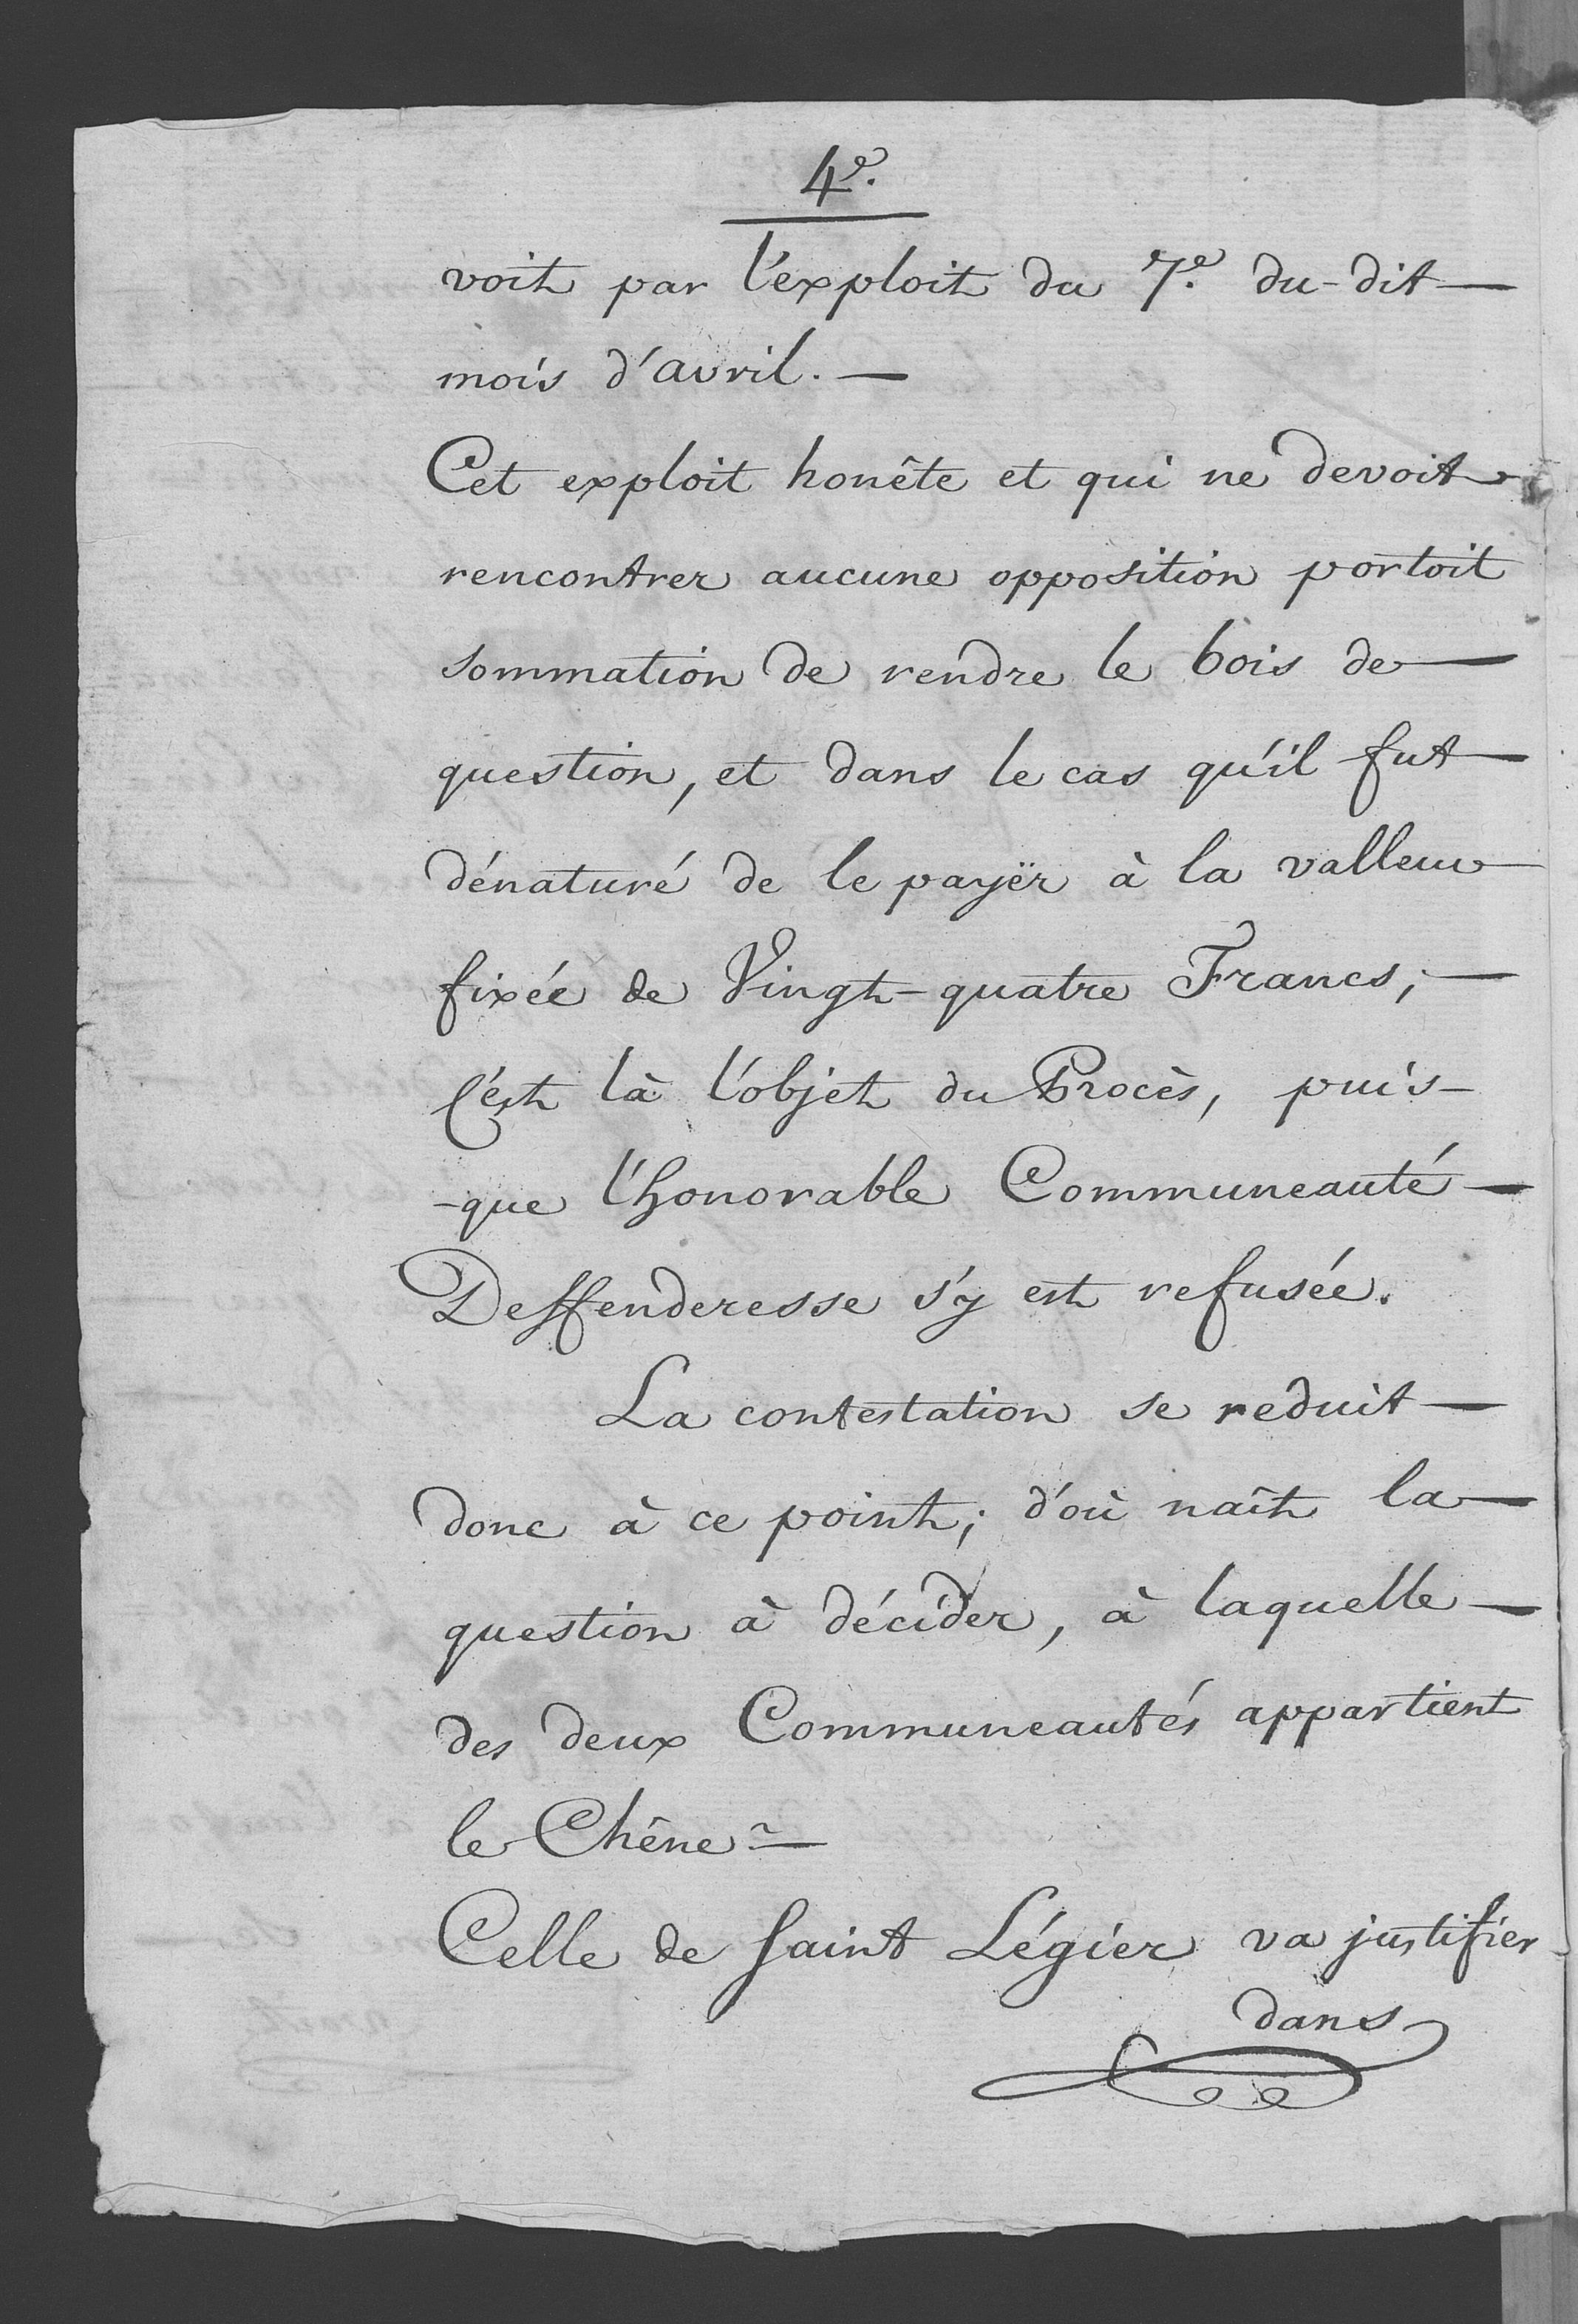 4e.
voit par l'exploit du 7e. du-dit —
mois d'avril. —
Cet exploit honête et qui ne devoit
rencontrer aucune opposition portoit
sommation de rendre le bois de —
question, et dans le cas qu'il fut —
dénaturé de le payër à la valleur
fixée de Vingt-quatre Francs; —
c'est là l'objet du Procès, puis-
-que l'honorable Communeauté —
Deffenderesse s'y est refusée.
La contestation se reduit —
donc à ce point; d'où naît la —
question à décider, à laquelle —
des deux Communeautés appartient
le Chêne? —
Celle de Saint Légier va justifier
dans